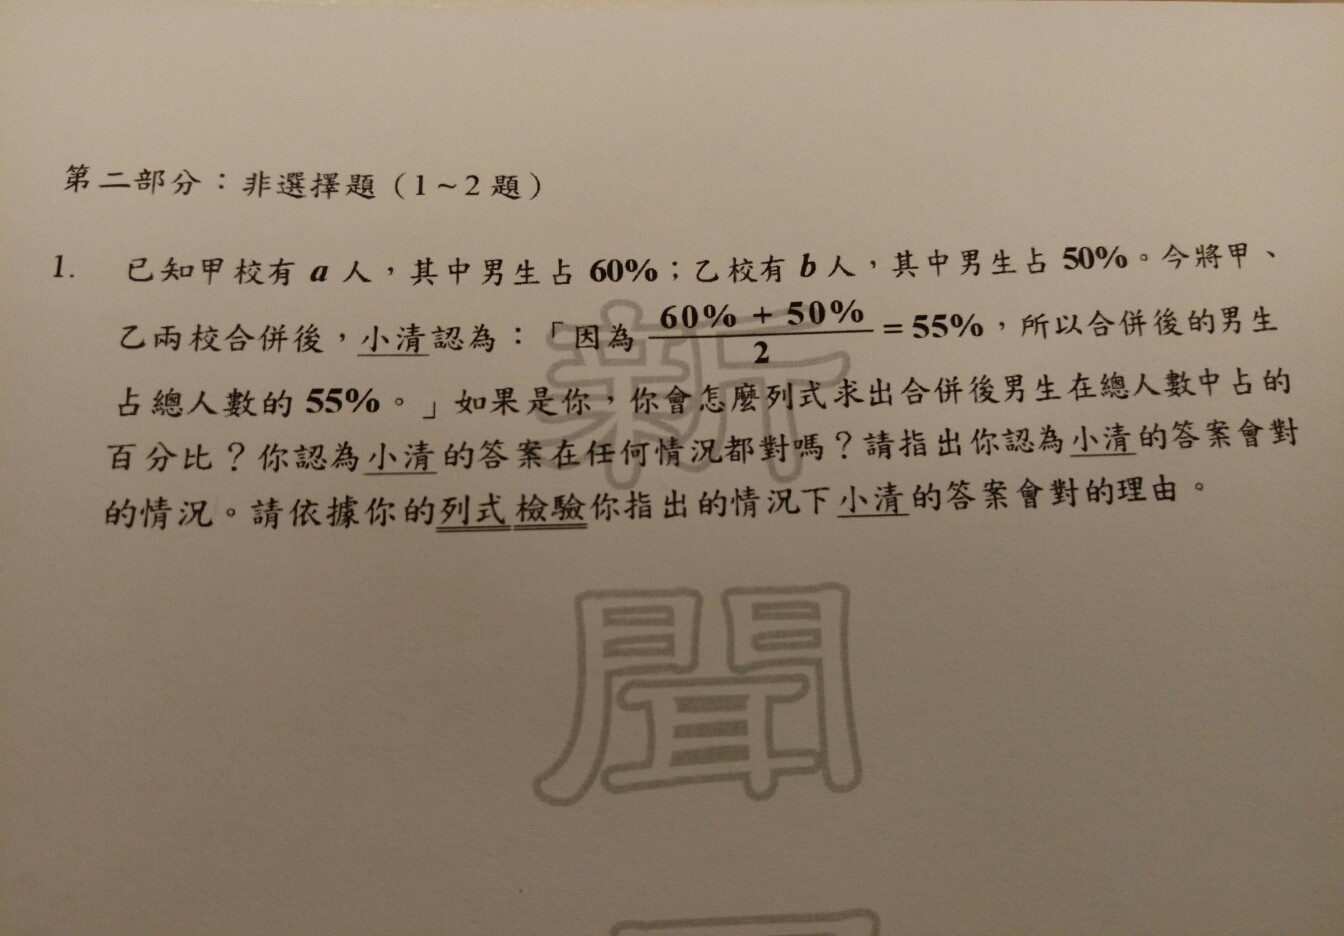 第二部分：非選擇題（1～2題）
1. 已知甲校有 a 人，其中男生占 60%；乙校有 b 人，其中男生占 50%。今將甲、
乙兩校合併後，小清認為：「因為 (60% + 50%)/2 = 55%，所以合併後的男生
占總人數的 55%。」如果是你，你會怎麼列式求出合併後男生在總人數中占的
百分比？你認為小清的答案在任何情況都對嗎？請指出你認為小清的答案會對
的情況。請依據你的列式檢驗你指出的情況下小清的答案會對的理由。
新
聞